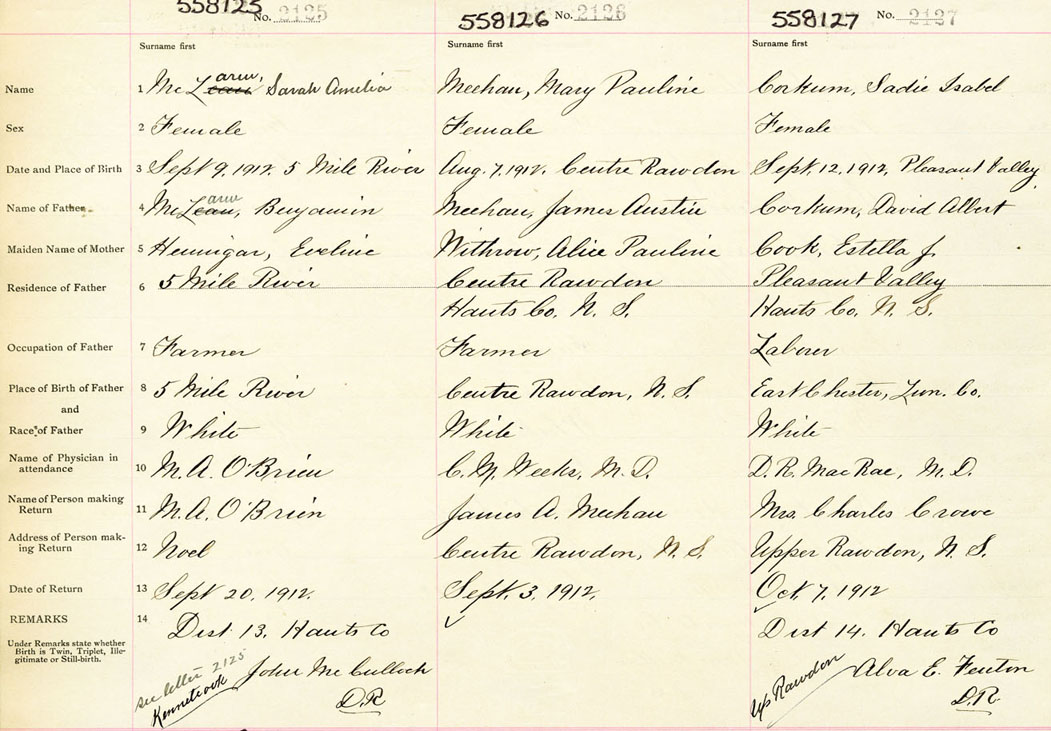 558125 No. 2125 558126 No. 2126 558127 No. 2127
Surname first Surname first Surname first
Name 1 McLearn, Sarah Amelia Meehan, Mary Pauline Corkum, Sadie Isabel
Sex 2 Female Female Female
Date and Place of Birth 3 Sept 9, 1912. 5 Mile River Aug. 7, 1912. Centre Rawdon Sept. 12, 1912, Pleasant Valley
Name of Father 4 McLearn, Benjamin Meehan, James Austin Corkum, David Albert
Maiden Name of Mother 5 Hennigar, Eveline Withrow, Alice Pauline Cook, Estella J.
Residence of Father 6 5 Mile River Centre Rawdon Pleasant Valley
Hants Co. N. S. Hants Co. N. S.
Occupation of Father 7 Farmer Farmer Laborer
Place of Birth of Father 8 5 Mile River Centre Rawdon, N. S. East Chester, Lun. Co.
and
Race of Father 9 White White White
Name of Physician in
attendance 10 M. A. O'Brien C. M. Weeks, M. D. D. R. MacRae, M. D.
Name of Person making
Return 11 M. A. O'Brien James A. Meehan Mrs. Charles Crowe
Address of Person mak-
ing Return 12 Noel Centre Rawdon, N. S. Upper Rawdon, N. S.
Date of Return 13 Sept 20, 1912. Sept. 3, 1912, Oct. 7, 1912
REMARKS 14 Dist 13. Hants Co Dist 14. Hants Co
Under Remarks state whether
Birth is Twin, Triplet, Ille-
gitimate or Still-birth.
see letter 2125
Kennetcook John McCulloch Up Rawdon Alva E. Fenton
D.R. D.R.